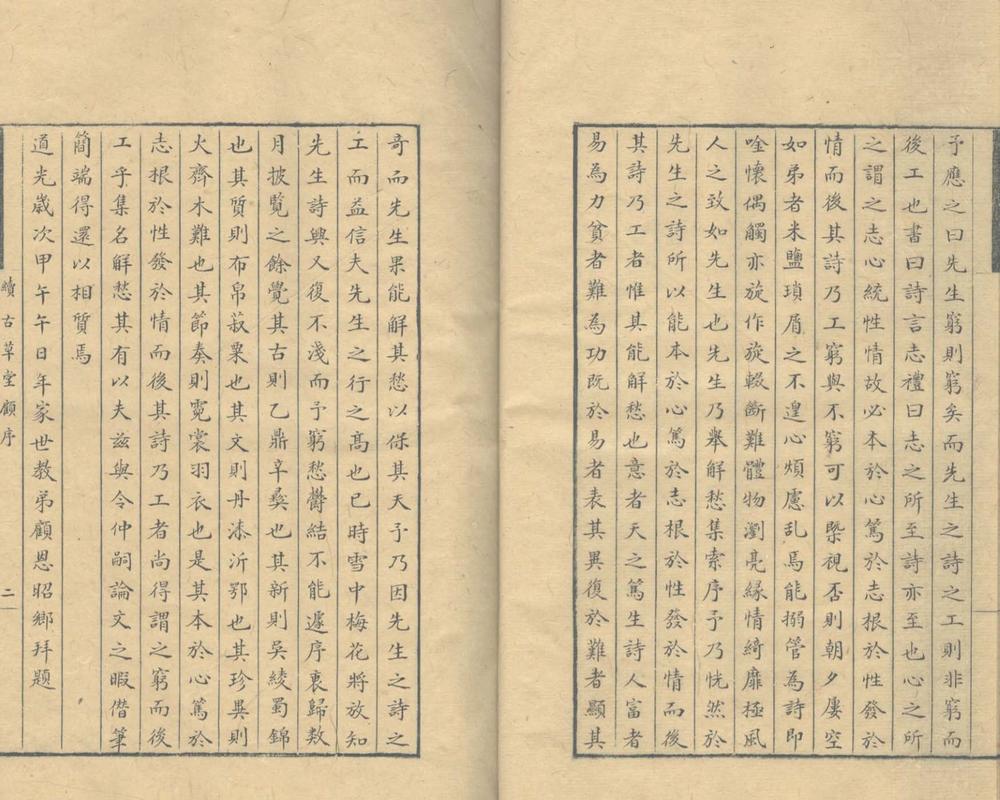 予應之曰先生窮則窮矣而先生之詩之工則非窮而
後工也書曰詩言志禮曰志之所至詩亦至也心之所
之謂之志心統性情故必本於心篤於志根於性發於
情而後其詩乃工窮與不窮可以槩視否則朝夕屢空
如弟者米鹽瑣屑之不遑心煩慮乱焉能搦管為詩即
唫懷偶觸亦旋作旋輟斷難體物瀏亮緣情綺靡極風
人之致如先生也先生乃舉解愁集索序予乃恍然於
先生之詩所以能本於心篤於志根於性發於情而後
其詩乃工者惟其能解愁也意者天之篤生詩人富者
易為力貧者難為功既於易者表其異復於難者顯其
奇而先生果能解其愁以保其天予乃因先生之詩之
工而益信夫先生之行之高也已時雪中梅花將放知
先生詩興又復不淺而予窮愁鬱結不能遽序裏歸数
月披覽之餘覺其古則乙鼎辛彝也其新則吳綾蜀錦
也其質則布帛菽粟也其文則丹漆沂鄂也其珍異則
火齊木難也其節奏則霓裳羽衣也是其本於心篤於
志根於性發於情而後其詩乃工者尚得謂之窮而後
工乎集名解愁其有以夫兹與令仲嗣論文之暇借筆
簡端得還以相質焉
道光歲次甲午午日年家世教弟顧恩昭鄉拜題
續古草堂顧序
二